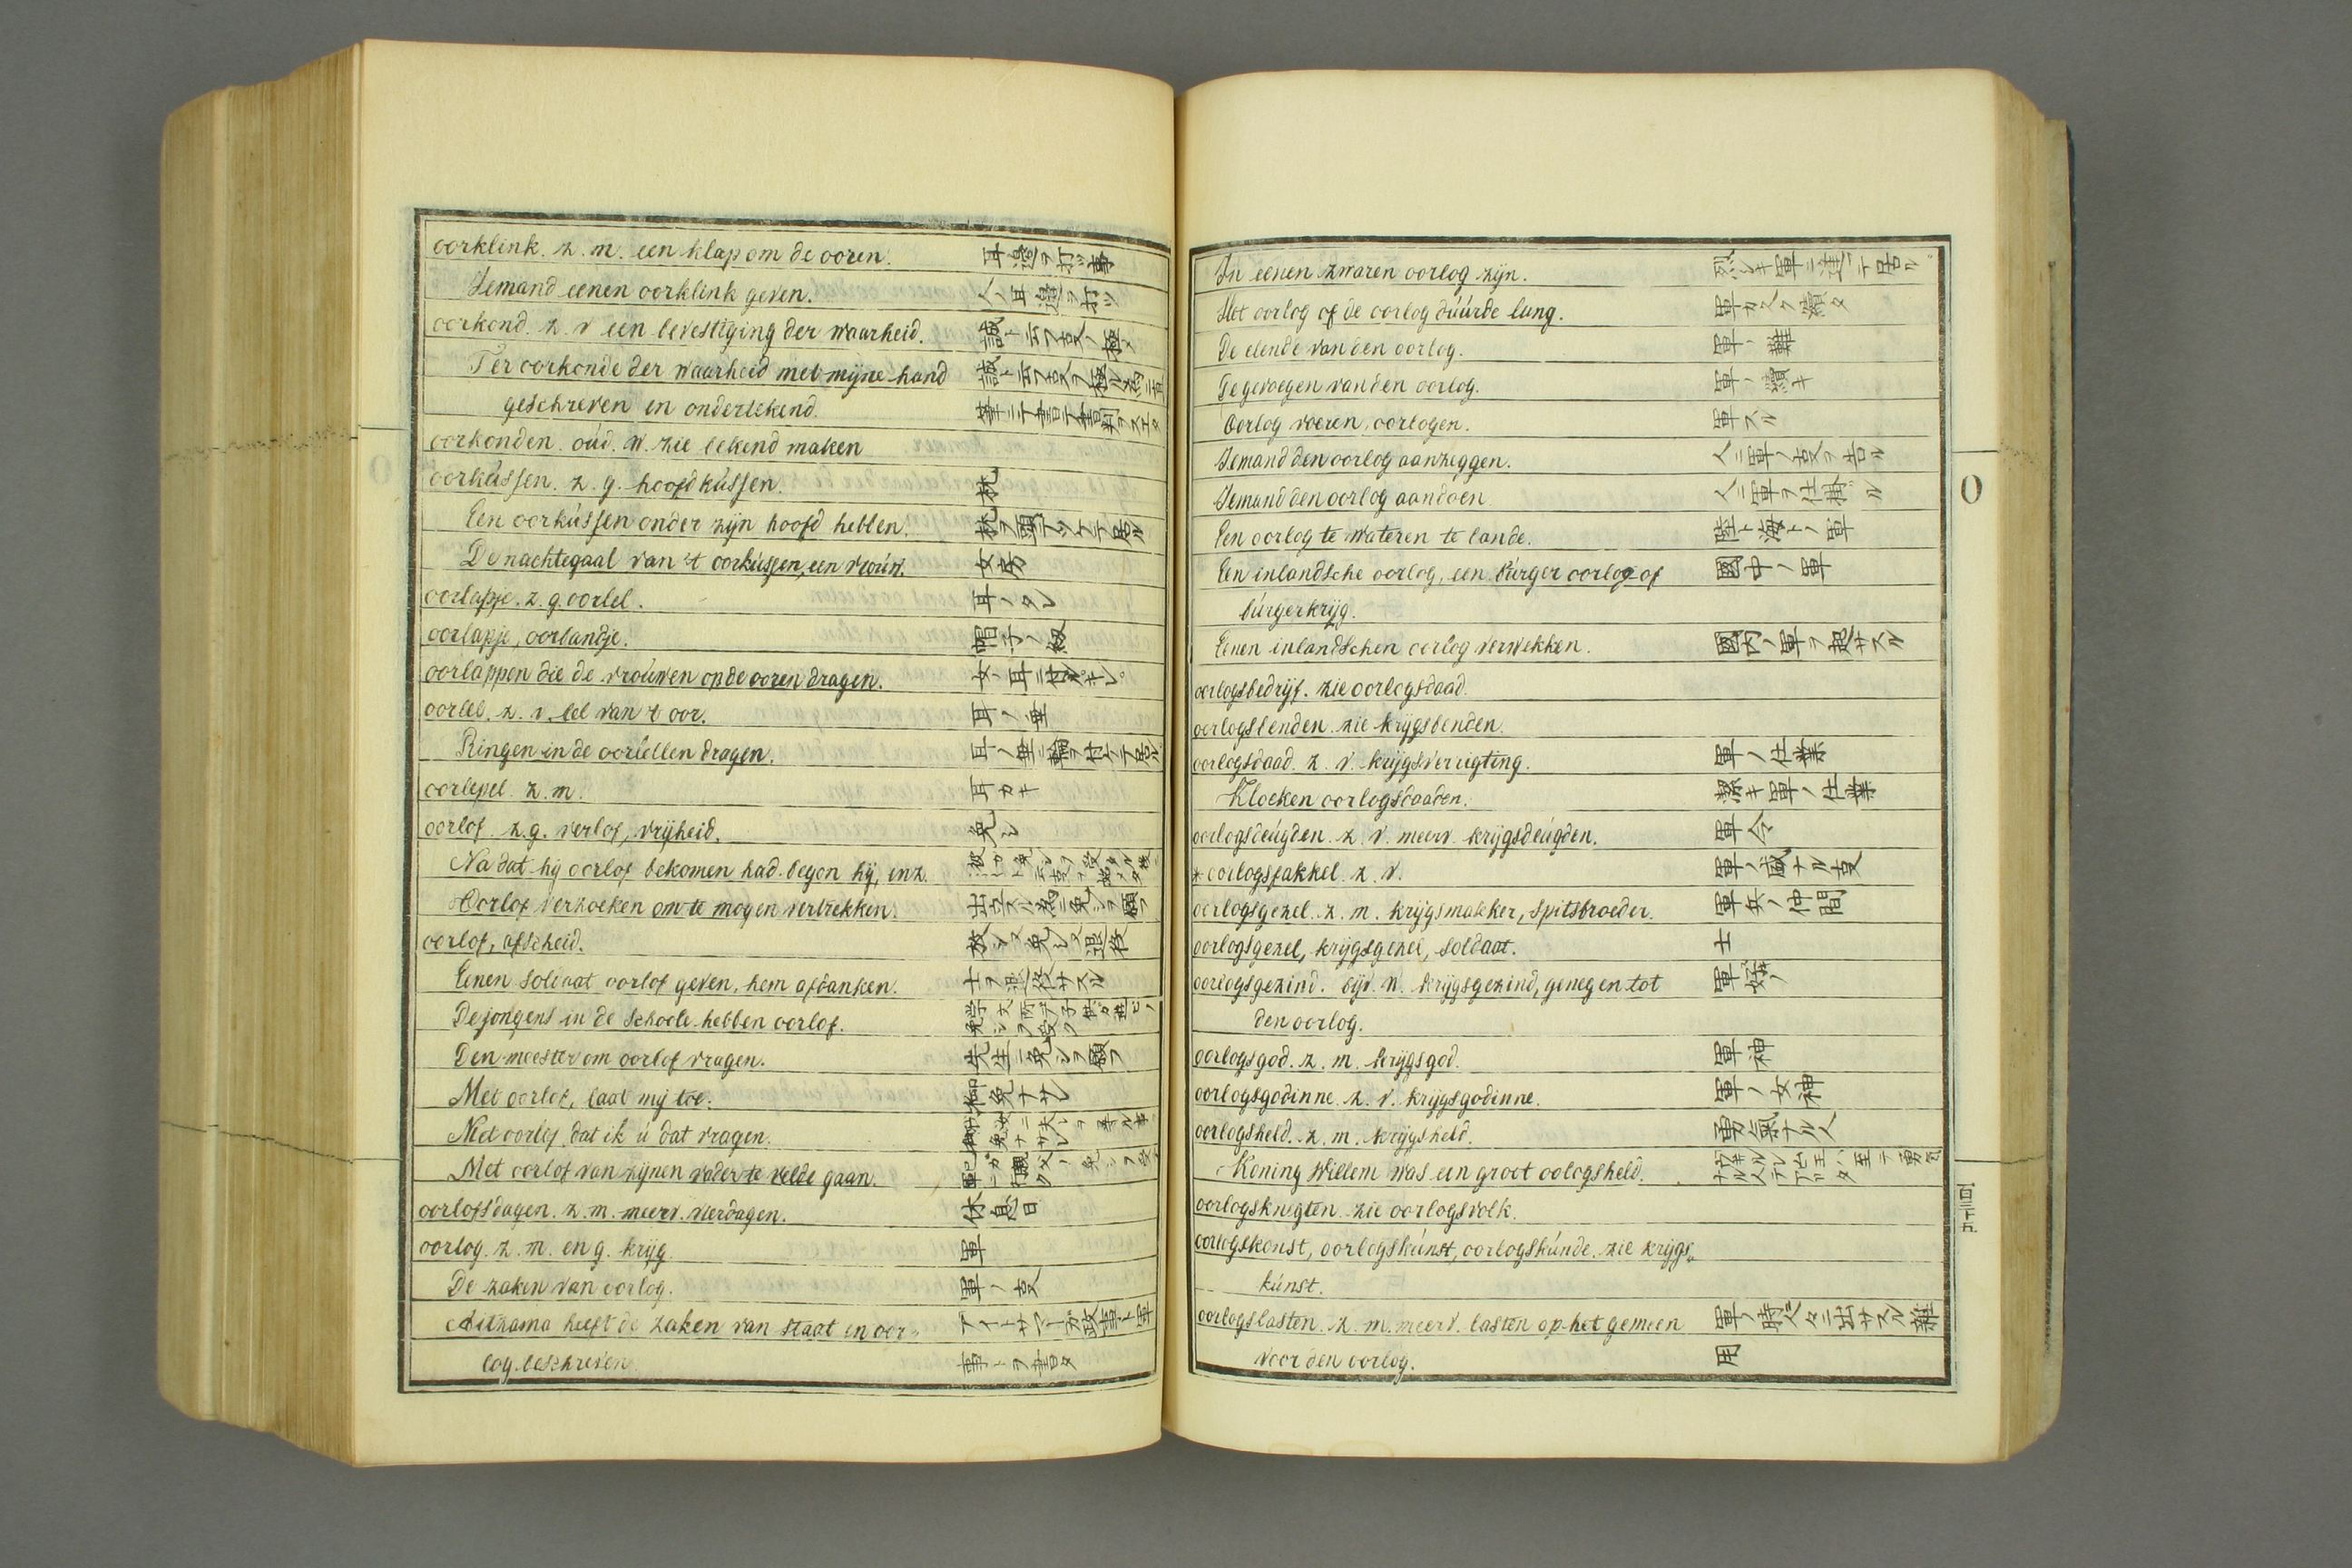 oorklink. z. m. een klap om de ooren. 耳邉ヲ打ツ事
Iemand eenen oorklink geven. 人ノ耳邉ヲ打ツ
oorkond. z. v een bevestiging der waarheid. 誠ト云フ支ノ極メ
Ter oorkonde der waarheid met mijne hand 誠ト云フ支ヲ極ル為ニ
geschreven en ondertekend. 筆ニテ書テ書判ヲスエタ
oorkonden. oúd. w. zie bekend maken
oorkússen. z. g. hoofdkússen. 枕
Een oorkússen onder zijn hoofd hebben. 枕ヲ頭デツケテ居ル
De nachtegaal van 't oorkússen, een vroúw. 女房
oorlapje. z. g. oorlel. 耳ノタレ
oorlapje, oorlandje. 帽子ノ
oorlappen die de vroúwen op de ooren dragen. 女ノ耳ニ付ル
oorlel. z. v. lel van 't oor. 耳ノ垂
Ringen in de oorlellen dragen. 耳ノ垂ニ輪ヲ付ケテ居ル
oorlepel. z. m. 耳カキ
oorlof. z. g. verlof, vrijheid. 免シ
Na dat hij oorlof bekomen had begon hij, enz.
Oorlof verzoeken om te mogen vertrekken. 出立スル為ニ免シヲ願フ
oorlof, afscheid. 放シ又免シ又退役
Eenen soldaat oorlof geven, hem afdanken. 士ヲ退役サスル
De jongens in de schoole hebben oorlof. 学文所デ子供ガ遊ビノ免シヲ受ク
Den meester om oorlof vragen. 先生ニ免シヲ願フ
Met oorlof, laat mij toe. 御免ナサレ
Met oorlof, dat ik ú dat vragen.
Met oorlof van zijnen vader te velde gaan.
oorlofsdagen. z. m. meerv. vierdagen. 休息日
oorlog. z. m. en g. krijg. 軍
De zaken van oorlog. 軍ノ支
Aitzama heeft de zaken van staat en oor- アイトサマーガ政事ト軍
log beschreven. 事トヲ書タ
In eenen zwaren oorlog zijn. 烈シキ軍ニ逢ニテ居ル
Het oorlog of de oorlog dúúrde lang. 軍ガ久ク續タ
De elende van den oorlog. 軍ノ難
De gevoegen van den oorlog. 軍ノ續キ
Oorlog voeren, oorlogen. 軍スル
Iemand den oorlog aanzeggen. 人ニ軍ノ支ヲ告ル
Iemand den oorlog aandoen 人ニ軍ヲ仕掛ル
Een oorlog te water en te lande. 陸ト海トノ軍
Een inlandsche oorlog, een búrger oorlog of 國中ノ軍
búrgerkrijg.
Eenen inlandschen oorlog verwekken. 國内ノ軍ヲ起サスル
oorlogsbedrijf. zie oorlogsdaad.
oorlogsbenden. zie krijgsbenden.
oorlogsdaad. z. v. krijgsverrigting. 軍ノ仕業
Kloeken oorlogsdaaden. 潔キ軍ノ仕業
oorlogsdeúgden. z. v. meerv. krijgsdeúgden. 軍令
*oorlogsfakkel. z. v. 軍ノ盛ナル支
oorlogsgezel. z. m. krijgsmakker, spitsbroeder. 軍兵ノ仲間
oorlogsgezel, krijgsgezel, soldaat. 士
oorlogsgezind. bijv. n. krijgsgezind, genegen tot 軍好ノ
den oorlog.
oorlogsgod. z. m. krijgsgod. 軍神
oorlogsgodinne. z. v. krijgsgodinne. 軍ノ女神
oorlogsheld. z. m. krijgsheld. 勇氣ナル人
Koning Willem was een groot oologsheld. ウヰルレム王ハ至テ勇氣ナル人デアツタ
oorlogsknegten. zie oorlogsvolk.
oorlogskonst, oorlogskúnst, oorlogskúnde. zie krijgs-
kúnst.
oorlogslasten. z. m. meerv. lasten op het gemeen 軍ノ時人々ニ出サスル雜
voor den oorlog. 用
O